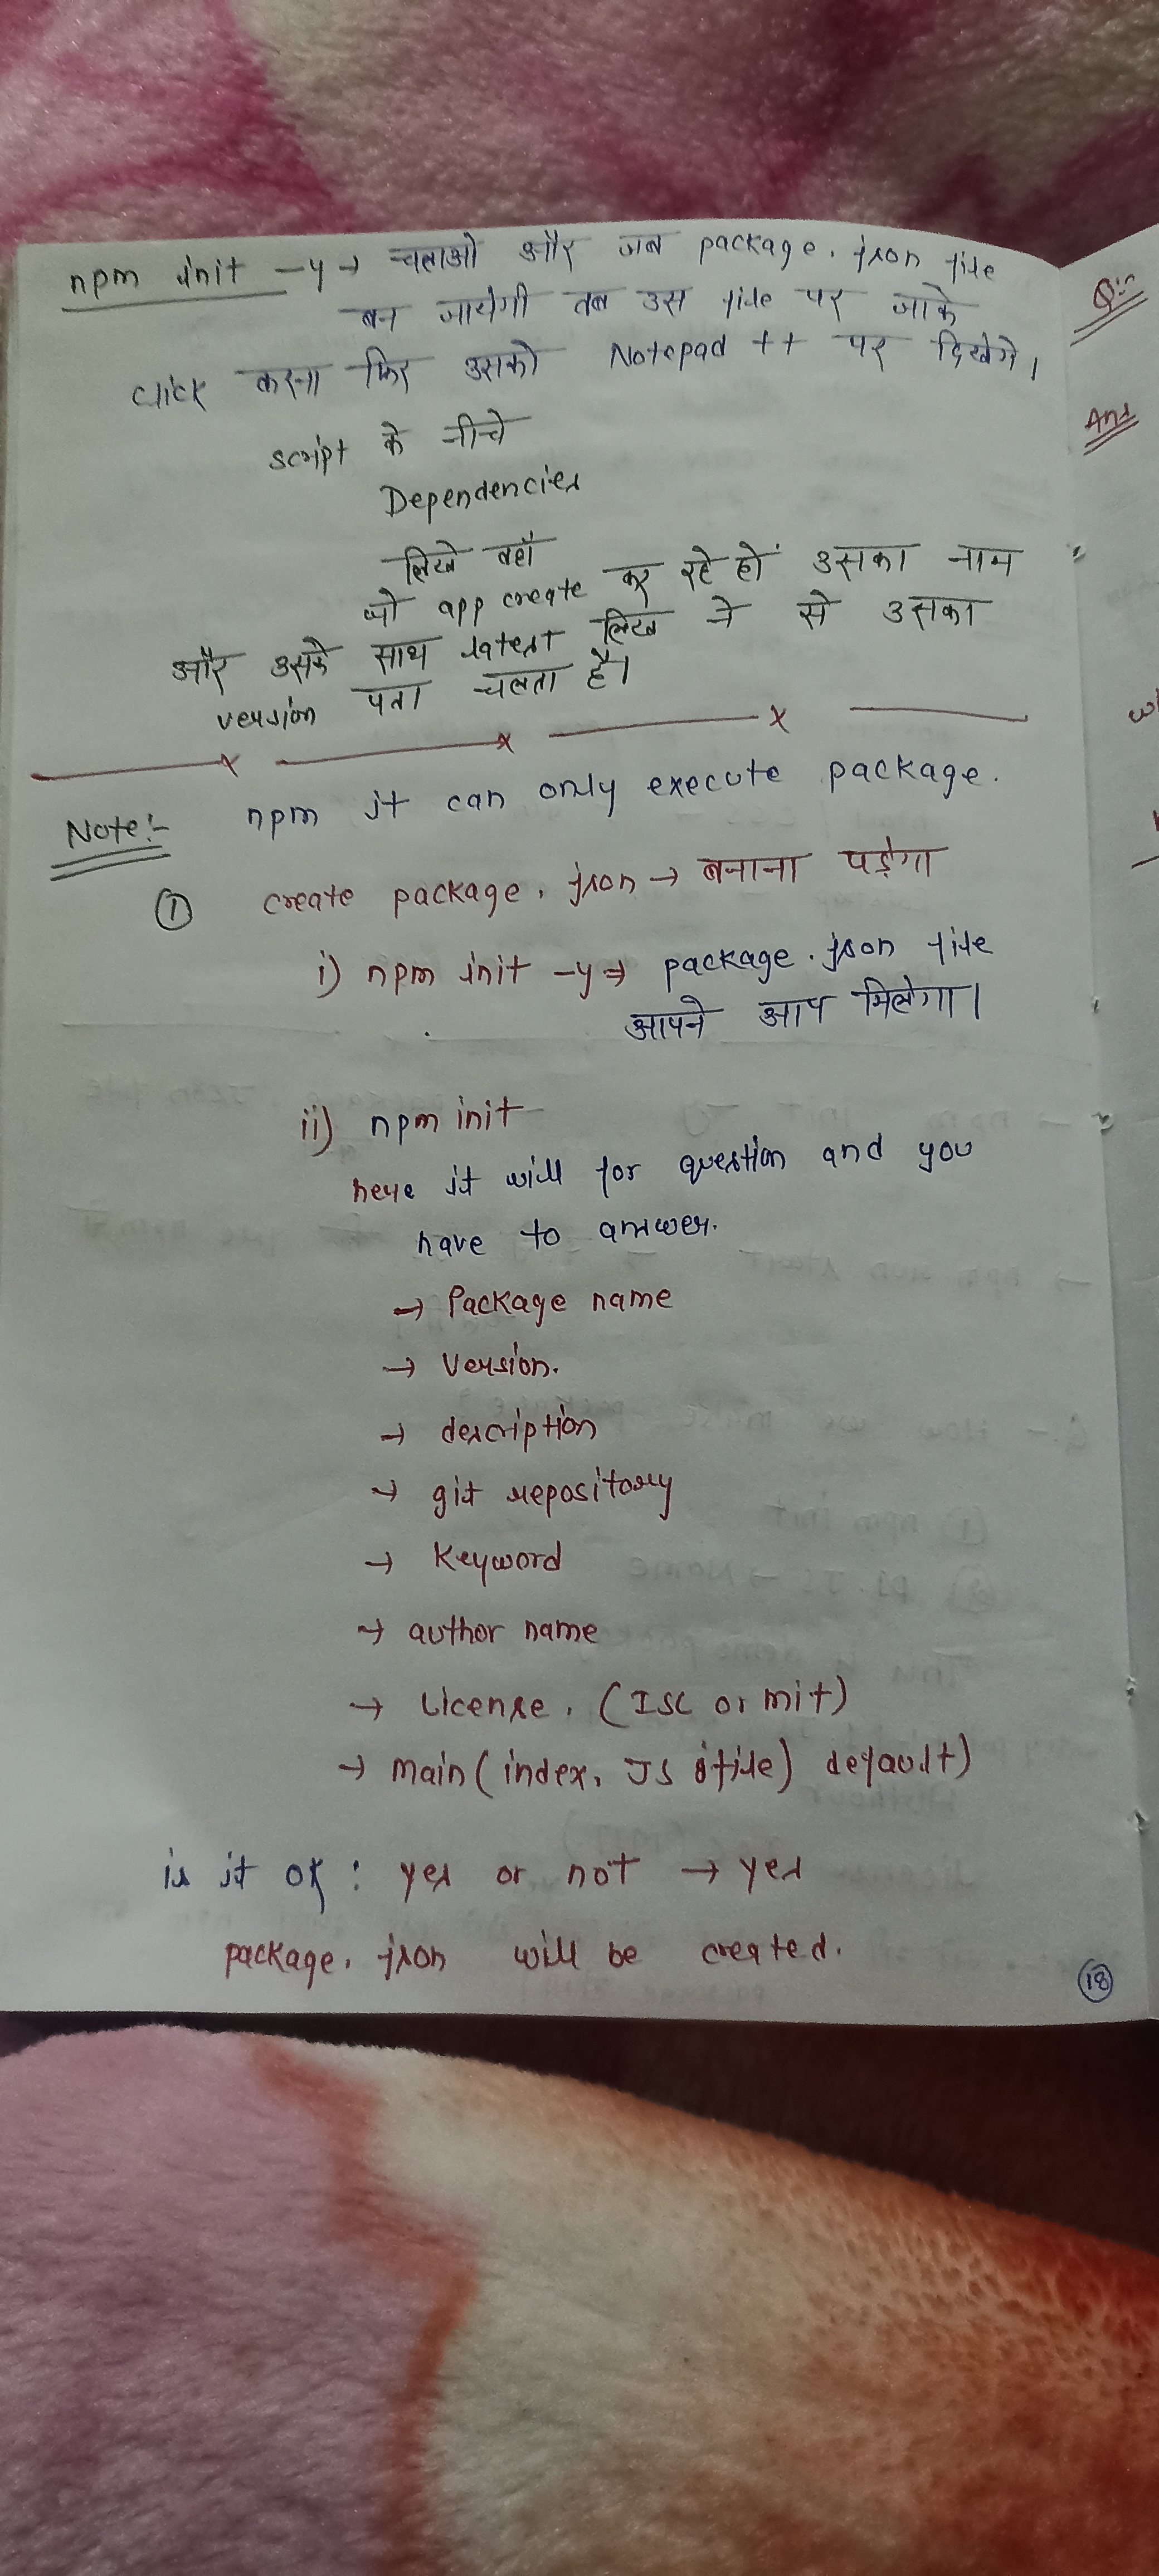 npm init -y → चलाओ और जब package.json file
बन जायेगी तब उस file पर जाके
click करना फिर उसको Notepad ++ पर दिखेगे।
script के नीचे
Dependencies
लिखे वहाँ
जो app create कर रहे हो उसका नाम
और उसके साथ latest लिख ने से उसका
version पता चलता है।
Note:- npm it can only execute package.
① create package.json → बनाना पड़ेगा
i) npm init -y ⇒ package.json file
आपने आप मिलेगा।
ii) npm init
here it will for question and you
have to answer.
→ Package name
→ Version.
→ description
→ git repository
→ Keyword
→ author name
→ License. (ISC or mit)
→ main (index. JS file) default)
is it ok : yes or not → yes
package.json will be created.
18
Q:-
Ans